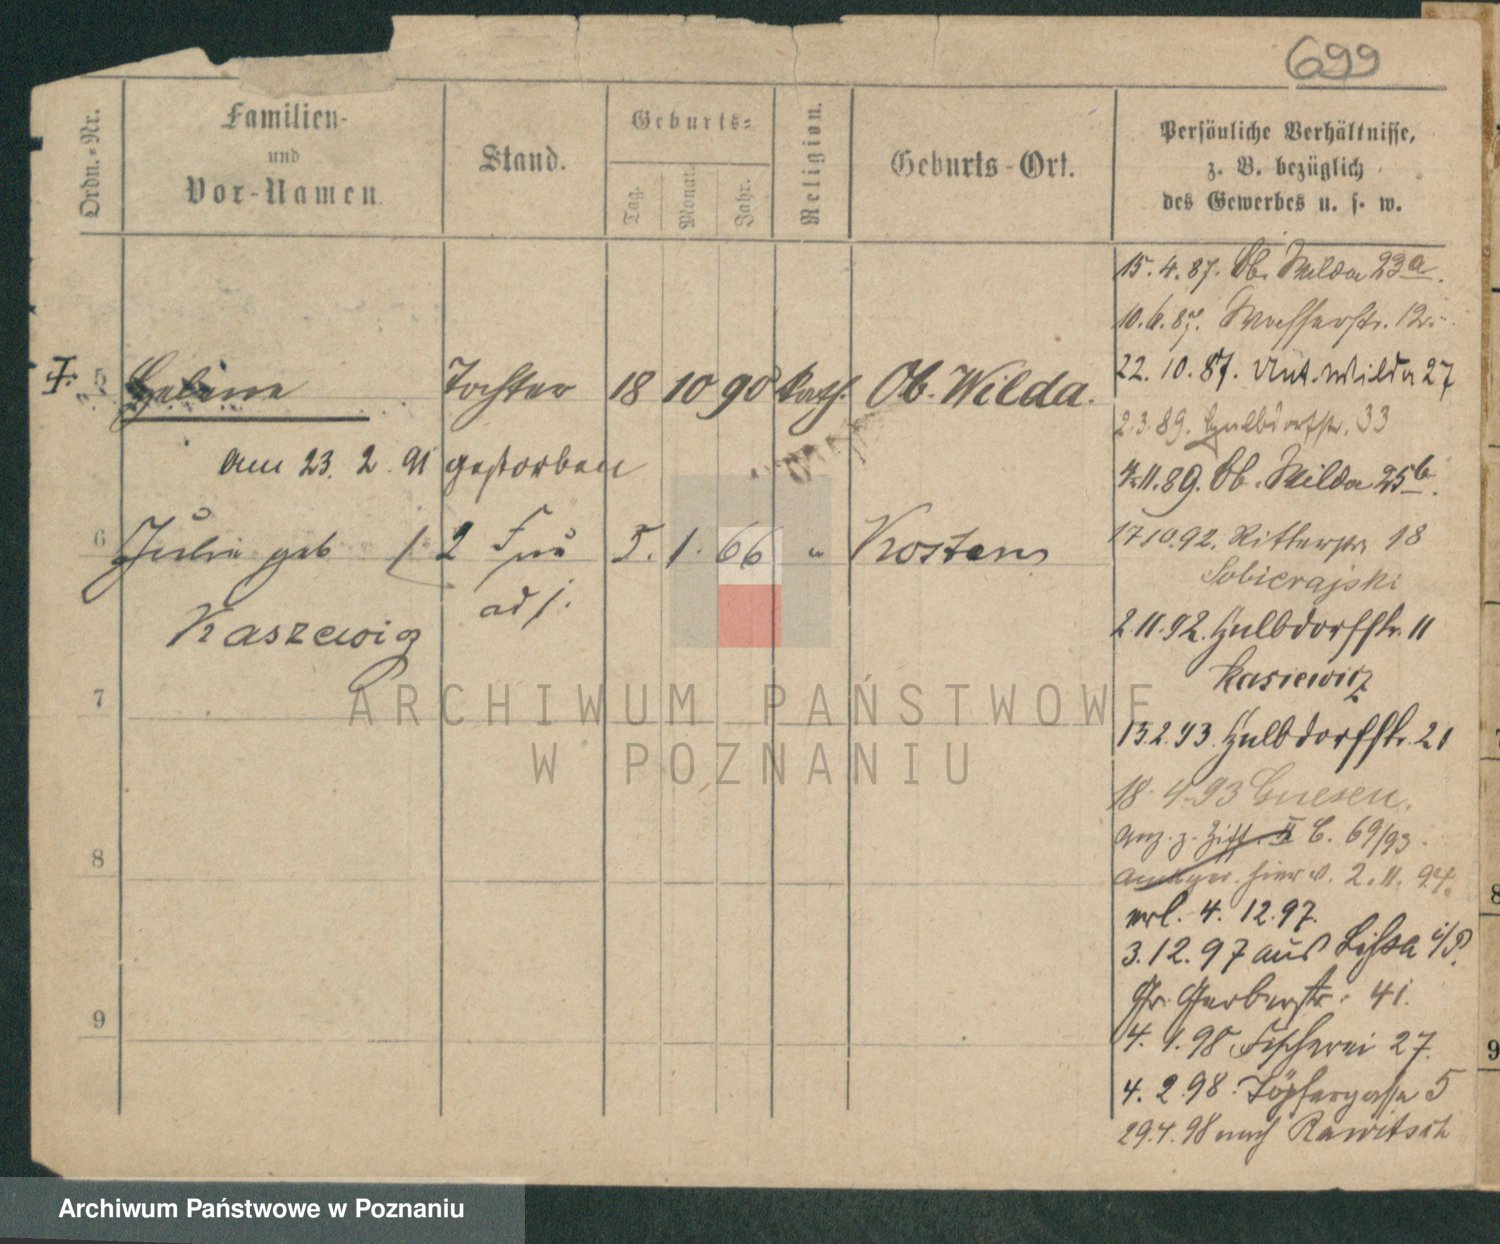 699
Ordn.-Nr.
Familien-
und
Vor-Namen.
Stand.
Geburts-
Tag.
Monat.
Jahr.
Religion.
Geburts-Ort.
Persönliche Verhältnisse,
z. B. bezüglich
des Gewerbes u. s. w.
5 Helene Tochter 18 10 90 kath. Ob. Wilda.
am 23. 2. 91 gestorben
6 Julie geb 2 Frau 5. 1. 66 " Kosten
ad 1.
Kaszewicz
7
8
9
15. 4. 87. Ob. Wilda 23a.
10. 6. 87. Wasserstr. 12.
22. 10. 87. Unt. Wilda 27
2. 3. 89. Halbdorfstr. 33
11. 89. Ob. Wilda 25b.
17 10. 92. Ritterstr 18
Sobierajski
2. 11. 92. Halbdorfstr. 11
Kasiewicz
13. 2. 93. Halbdorfstr. 21
18. 4. 93 Gnesen.
69/93.
hier v. 2. 11. 94.
4. 12. 97.
3. 12. 97 aus Lissa i/P.
Gr. Gerberstr. 41.
4. 1. 98. Fischerei 27.
4. 2. 98. Töpfergasse 5
29. 4. 98 nach Rawitsch
ARCHIWUM PAŃSTWOWE
W POZNANIU
Archiwum Państwowe w Poznaniu
8
9